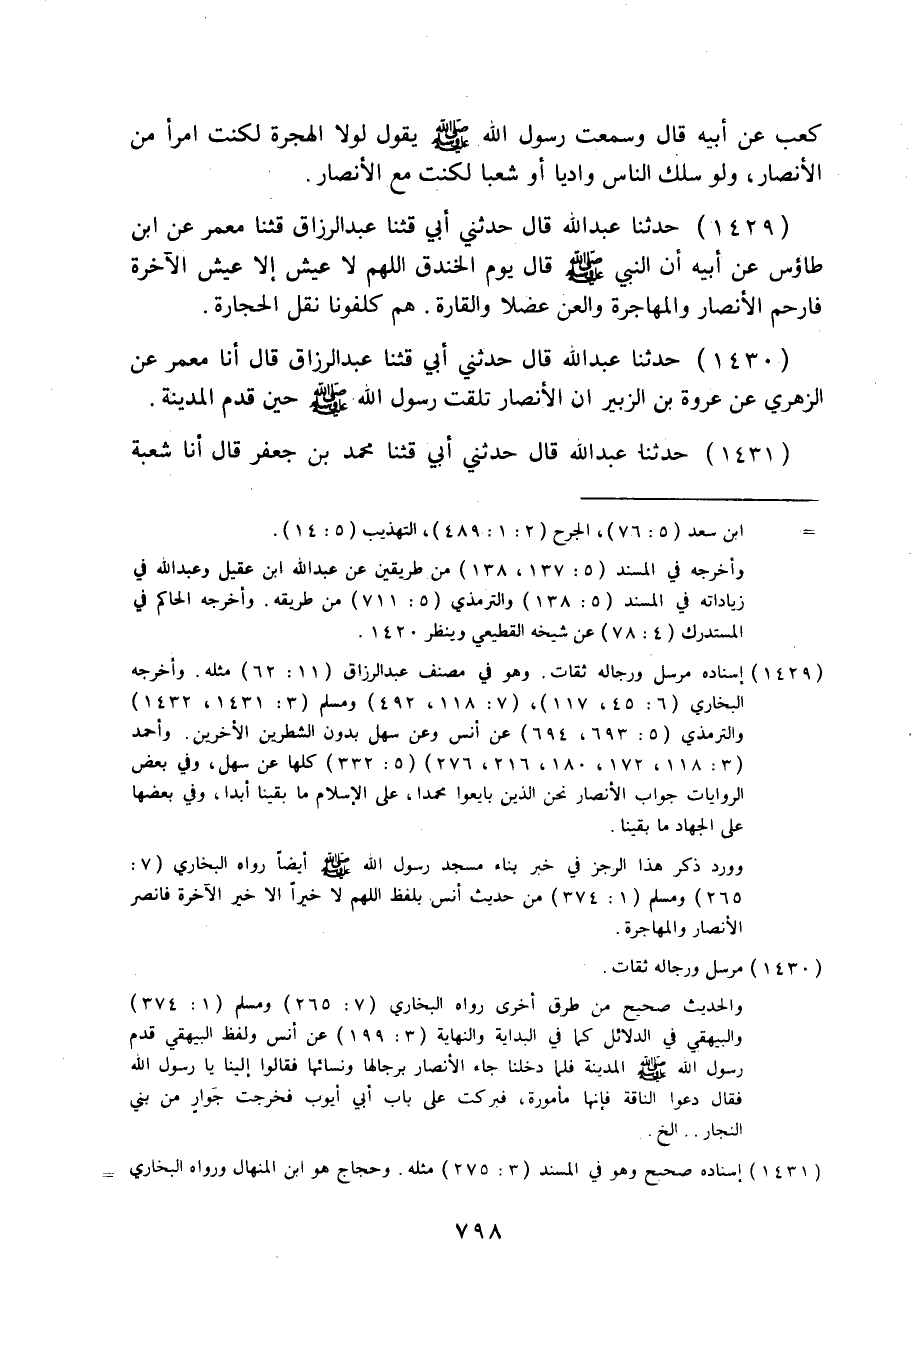 كعب عن أبيه قال وسمعت رسول الله ﷺ يقول لولا الهجرة لكنت امرأ من
الأنصار، ولو سلك الناس واديا أو شعبا لكنت مع الأنصار.
(١٤٢٩) حدثنا عبدالله قال حدثني أبي قثنا عبدالرزاق قثنا معمر عن ابن
طاؤس عن أبيه أن النبي ﷺ قال يوم الخندق اللهم لا عيش إلا عيش الآخرة
فارحم الأنصار والمهاجرة والعن عضلا والقارة. هم كلفونا نقل الحجارة.
(١٤٣٠) حدثنا عبدالله قال حدثني أبي قثنا عبدالرزاق قال أنا معمر عن
الزهري عن عروة بن الزبير ان الأنصار تلقت رسول الله ﷺ حين قدم المدينة.
(١٤٣١) حدثنا عبدالله قال حدثني أبي قثنا محمد بن جعفر قال أنا شعبة
= ابن سعد (٥: ٧٦)، الجرح (٢: ١: ٤٨٩)، التهذيب (٥: ١٤).
وأخرجه في المسند (٥: ١٣٧، ١٣٨) من طريقين عن عبدالله ابن عقيل وعبدالله في
زياداته في المسند (٥: ١٣٨) والترمذي (٥: ٧١١) من طريقه. وأخرجه الحاكم في
المستدرك (٤: ٧٨) عن شيخه القطيعي وينظر ١٤٢٠.
(١٤٢٩) إسناده مرسل ورجاله ثقات. وهو في مصنف عبدالرزاق (١١: ٦٢) مثله. وأخرجه
البخاري (٦: ٤٥، ١١٧)، (٧: ١١٨، ٤٩٢) ومسلم (٣: ١٤٣١، ١٤٣٢)
والترمذي (٥: ٦٩٣، ٦٩٤) عن أنس وعن سهل بدون الشطرين الأخرين. وأحمد
(٣: ١١٨، ١٧٢، ١٨٠، ٢١٦، ٢٧٦) (٥: ٣٣٢) كلها عن سهل، وفي بعض
الروايات جواب الأنصار نحن الذين بايعوا محمدا، على الإسلام ما بقينا أبدا، وفي بعضها
على الجهاد ما بقينا.
وورد ذكر هذا الرجز في خبر بناء مسجد رسول الله ﷺ أيضاً رواه البخاري (٧:
٢٦٥) ومسلم (١: ٣٧٤) من حديث أنس بلفظ اللهم لا خيراً الا خير الآخرة فانصر
الأنصار والمهاجرة.
(١٤٣٠) مرسل ورجاله ثقات.
والحديث صحيح من طرق أخرى رواه البخاري (٧: ٢٦٥) ومسلم (١: ٣٧٤)
والبيهقي في الدلائل كما في البداية والنهاية (٣: ١٩٩) عن أنس ولفظ البيهقي قدم
رسول الله ﷺ المدينة فلما دخلنا جاء الأنصار برجالها ونسائها فقالوا إلينا يا رسول الله
فقال دعوا الناقة فإنها مأمورة، فبركت على باب أبي أيوب فخرجت جَوارٍ من بني
النجار.. الخ.
(١٤٣١) إسناده صحيح وهو في المسند (٣: ٢٧٥) مثله. وحجاج هو ابن المنهال ورواه البخاري =
٧٩٨